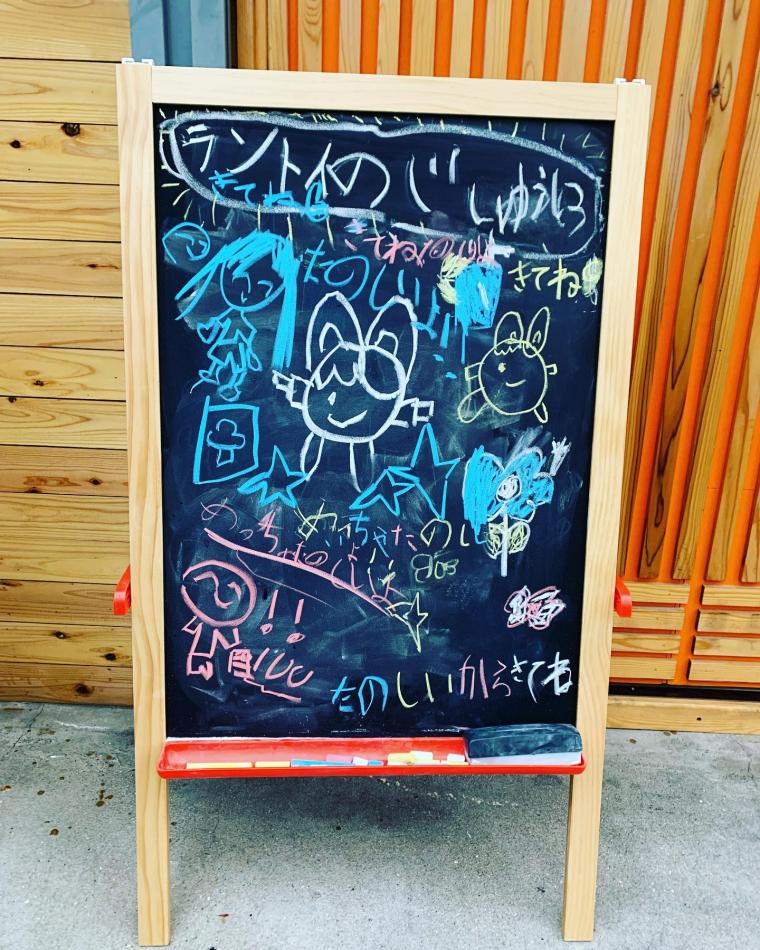 ラントイの じしゅうしつ
きてね
きてね
たのしいよ
きてね!
めっちゃたのし
めっちゃたのしいよ
!!
たのしいからきてね